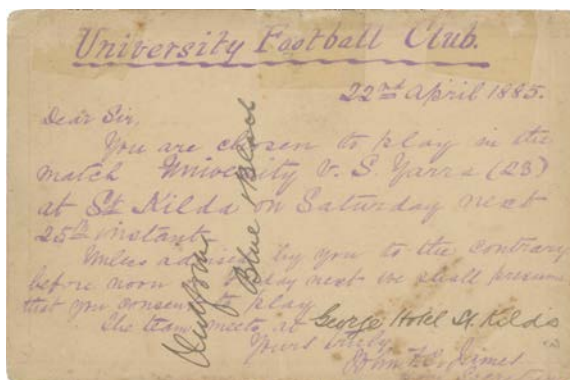 University Football Club.
22nd April 1885.
Dear Sir,
You are chosen to play in the
match University v. S Yarra (23)
at St Kilda on Saturday next
25th instant
Unless advised by you to the contrary
before noon day next we shall presume
that you consent to play
The team meets at George Hotel St. Kilda
Yours truly
James
Uniform
Blue & Black